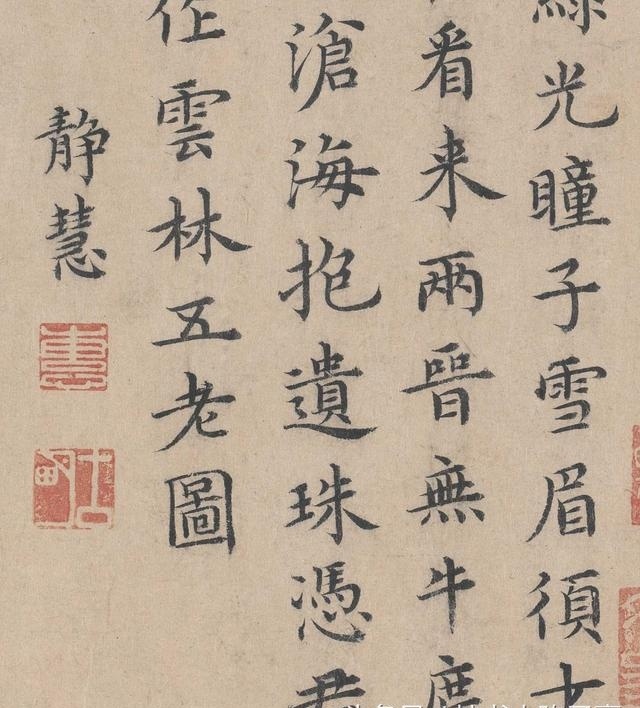 綠光瞳子雪眉須
看来兩晉無牛
滄海抱遺珠憑君
作雲林五老圖
静慧